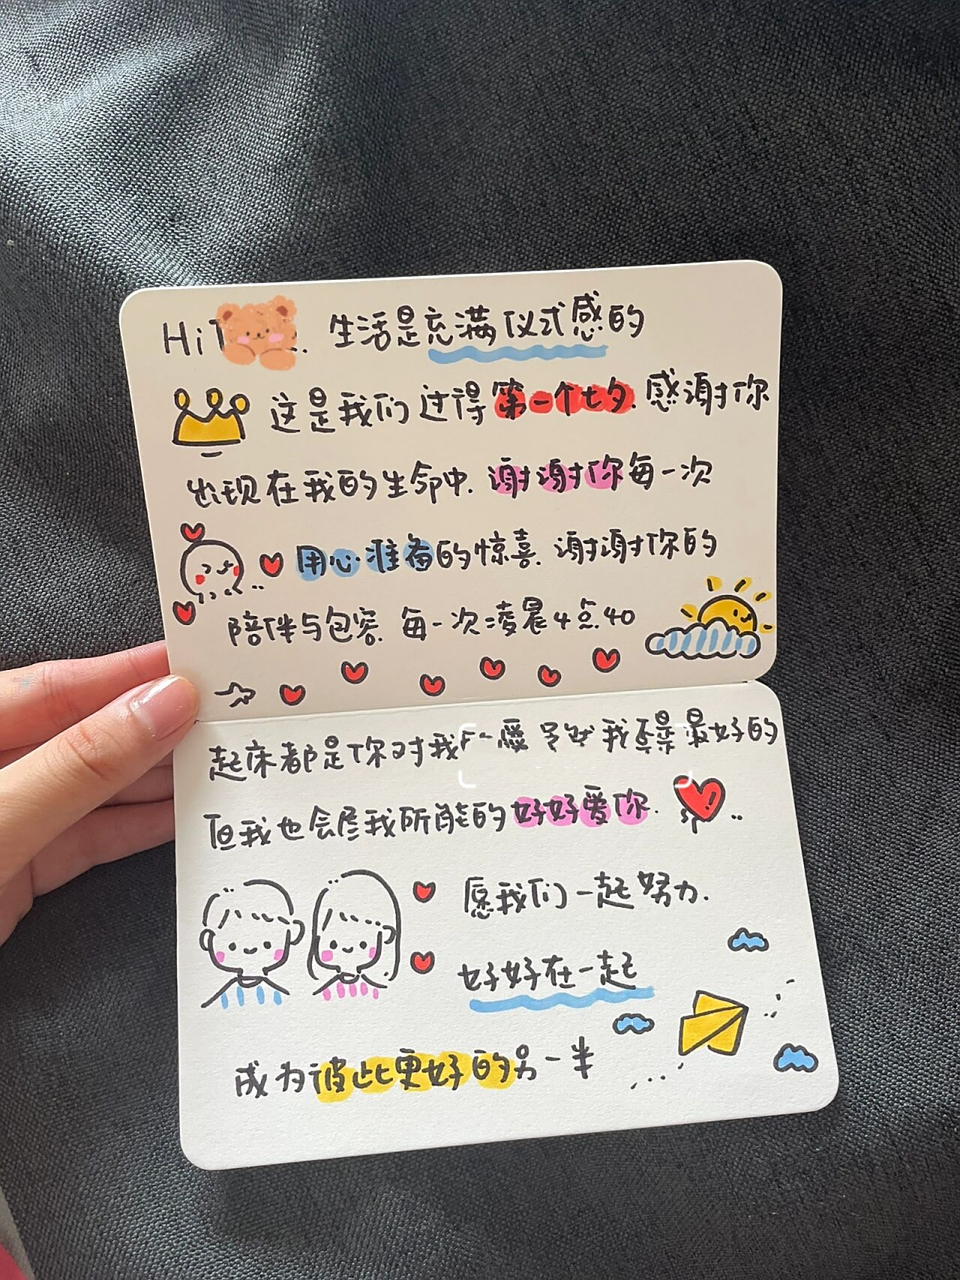 Hi 生活是充满仪式感的
这是我们过得第一个七夕.感谢你
出现在我的生命中.谢谢你每一次
用心准备的惊喜.谢谢你的
陪伴与包容.每一次凌晨4点40
起床都是你对我 爱 我 是最好的
但我也会尽我所能的好好爱你.
愿我们一起努力.
好好在一起
成为彼此更好的另一半